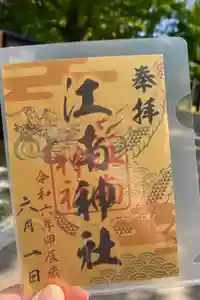 奉拝
江南神社
令和六年甲辰歳
六月一日